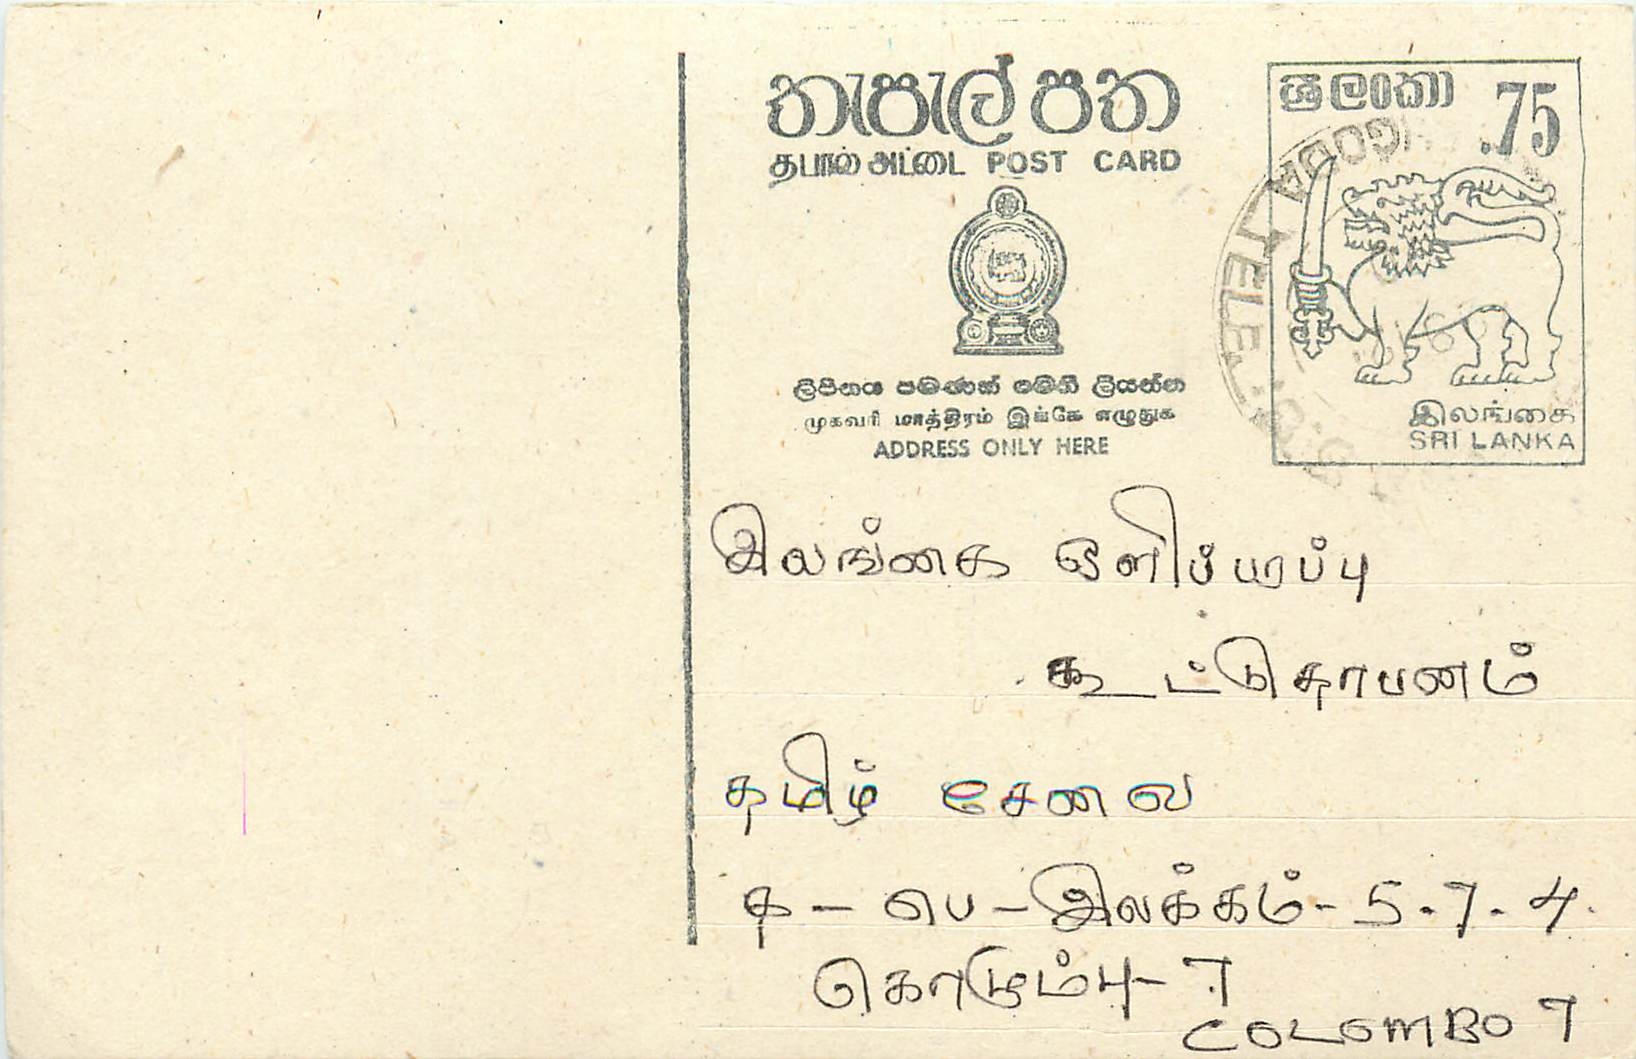 තැපැල් පත
தபால் அட்டை POST CARD
ලිපිනය පමණක් මෙහි ලියන්න
முகவரி மாத்திரம் இங்கே எழுதுக
ADDRESS ONLY HERE
ශ්‍රී ලංකා
.75
இலங்கை
SRI LANKA
GODA
TELE
இலங்கை ஒளிப்பரப்பு
கூட்டுதாபனம்
தமிழ் சேவை
த - பெ - இலக்கம் - 5.7.4.
கொழும்பு - 7
COLOMBO 7